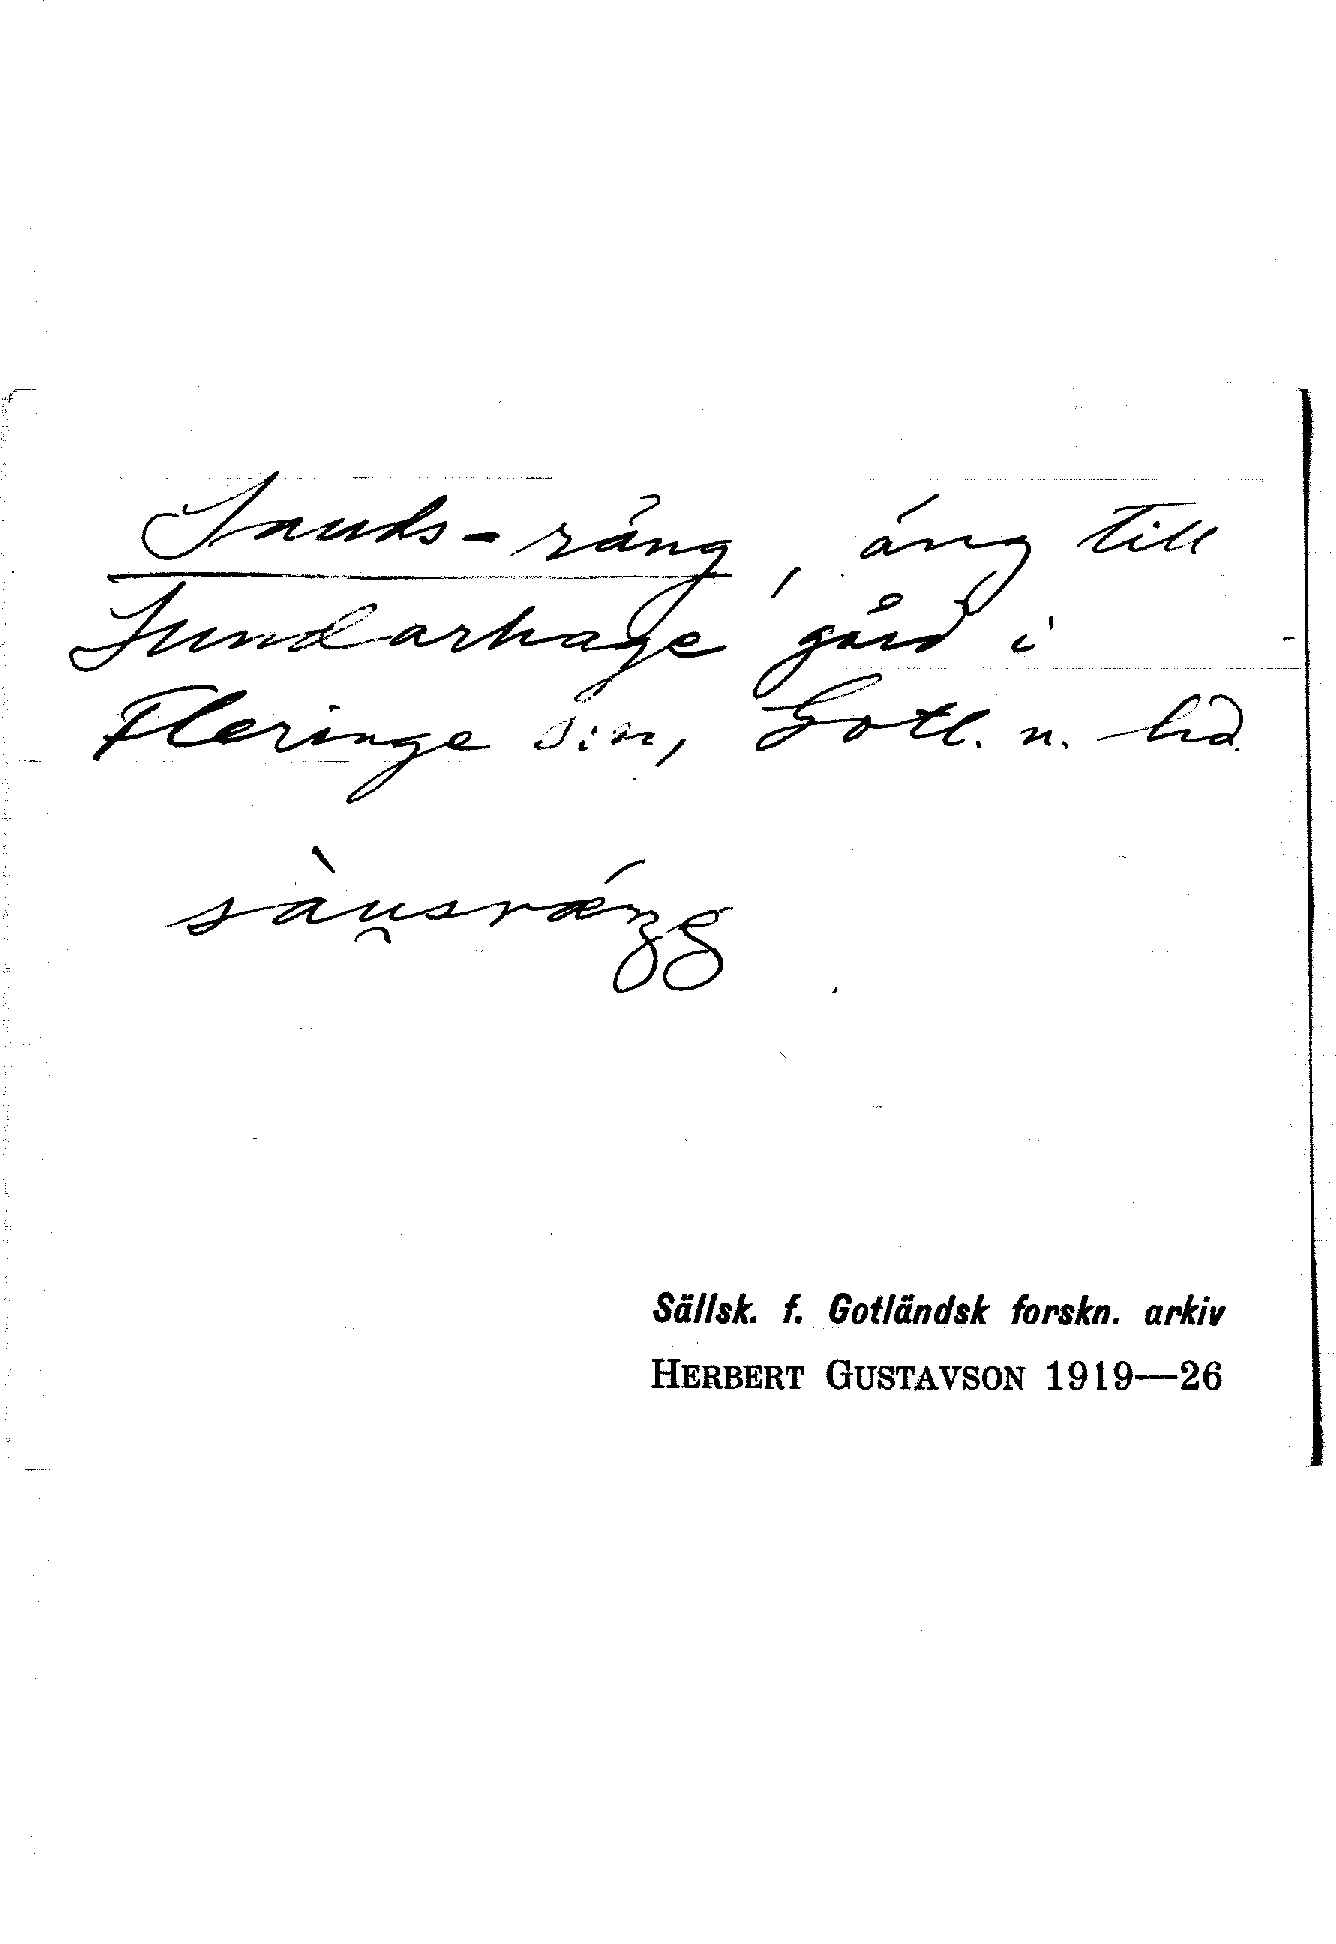 Sauds-räng, äng till
Sundarhage gård i
Fleringe s:n, Gotl. n. hd.
sàu̯sræ´ŋg
Sällsk. f. Gotländsk forskn. arkiv
HERBERT GUSTAVSON 1919—26